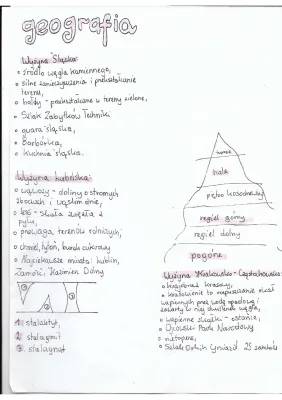 geografia
Wyżyna Śląska:
źródło węgla kamiennego,
silne zanieczyszczenia i przekształcenie
terenu,
hałdy - przekształcane w tereny zielone,
Szlak Zabytków Techniki
gwara śląska,
Barbórka,
kuchnia śląska.
Wyżyna Lubelska:
wąwozy - doliny o stromych
zboczach i wąskim dnie,
less - skała zwięzła z
pyłu,
przewaga terenów rolniczych,
chmiel, tytoń, buraki cukrowe
Największe miasta: Lublin,
Zamość, Kazimierz Dolny
1 2 3
1. stalaktyt,
2. stalagmit
3. stalagnat
hale
piętro kosodrzewiny
regiel górny
regiel dolny
pogórze
Wyżyna Krakowsko-Częstochowska:
krajobraz krasowy,
krasowienie to rozpuszczanie skał
wapiennych przez wodę opadową i
zawarty w niej dwutlenek węgla,
wapienne skałki - ostańce,
Ojcowski Park Narodowy
nietoperze,
Szlak Orlich Gniazd 25 zamków